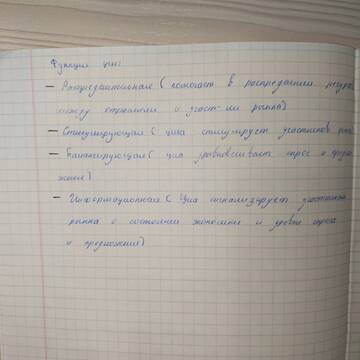 Функции цены
– Распределительная (помогает в распределении ресур
между отраслями и участ-ми рынка)
– Стимулирующая (цена стимулирует участников рын
– Балансирующая (цена уравновешивает спрос и предл
жение)
– Информационная (цена сигнализирует участникам
рынка о состоянии экономики и уровне спроса
и предложения)